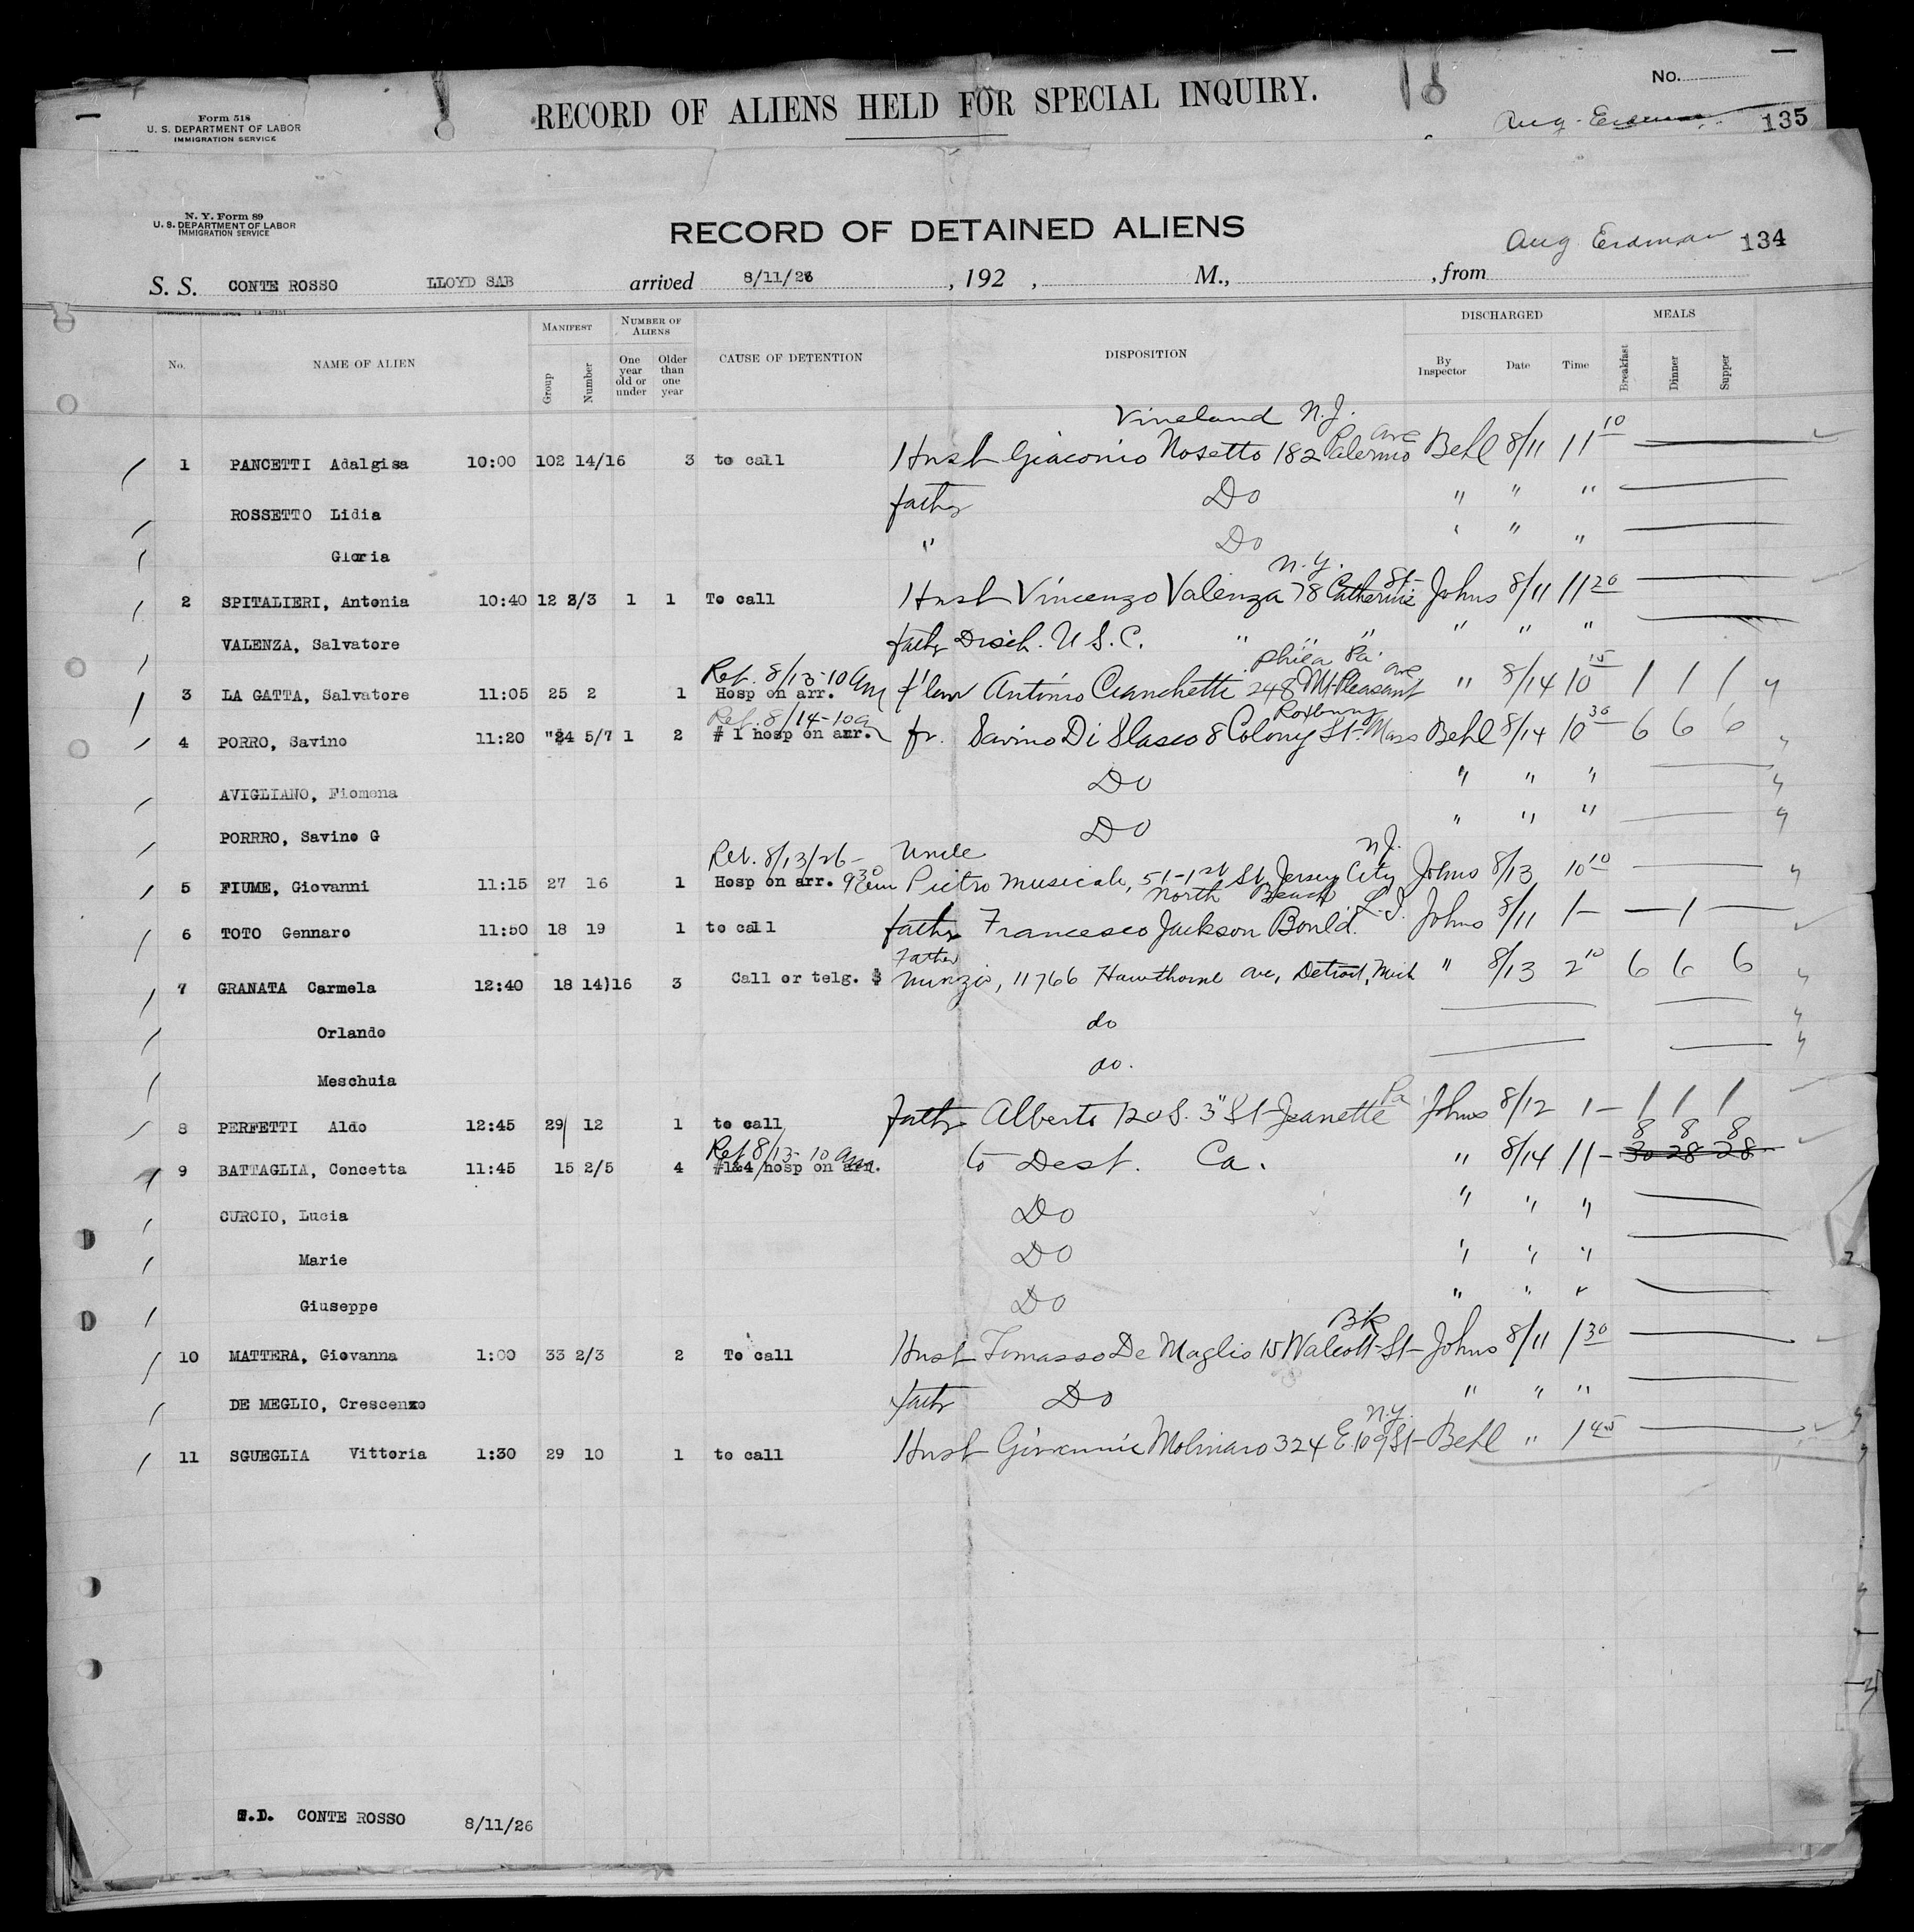 Form 518
U. S. DEPARTMENT OF LABOR
IMMIGRATION SERVICE
RECORD OF ALIENS HELD FOR SPECIAL INQUIRY.
No.
Aug. Erdman 135
N. Y. Form 89
U. S. DEPARTMENT OF LABOR
IMMIGRATION SERVICE
RECORD OF DETAINED ALIENS
Aug Erdman 134
S. S. CONTE ROSSO LLOYD SAB arrived 8/11/26 , 192 , M., , from
No. NAME OF ALIEN MANIFEST Group Number NUMBER OF ALIENS One year old or under Older than one year CAUSE OF DETENTION DISPOSITION DISCHARGED By Inspector Date Time MEALS Breakfast Dinner Supper
Vineland N.J.
1 PANCETTI Adalgisa 10:00 102 14/16 3 to call Husb Giacomo Nosetto 182 Palermo ave Behl 8/11 11 10
ROSSETTO Lidia father Do " " "
Gloria " Do " " "
N.Y.
2 SPITALIERI, Antonia 10:40 12 2/3 1 1 To call Husb Vincenzo Valenza 78 Catherine St- Johns 8/11 11 20
VALENZA, Salvatore father Disch. U S. C. " " " " " "
Ret. 8/13-10 am Phila Pa.
3 LA GATTA, Salvatore 11:05 25 2 1 Hosp on arr. f'law Antonio Cianchetti 248 Mt-Pleasant ave " 8/14 10 15 1 1 1
Ret. 8/14-10a Roxbury
4 PORRO, Savino 11:20 "24 5/7 1 2 # 1 hosp on arr. fr. Savino Di Blasco 8 Colony St- Mass Behl 8/14 10 30 6 6 6
AVIGLIANO, Fiomena Do " " "
PORRRO, Savino G Do " " "
Ret. 8/13/26- Uncle N.J.
5 FIUME, Giovanni 11:15 27 16 1 Hosp on arr. 9 30 am Pietro Musicale, 51-1st St, Jersey City Johns 8/13 10 10
North Beach L.I.
6 TOTO Gennaro 11:50 18 19 1 to call father Francesco Jackson Bould. Johns 8/11 1- 1
Father
7 GRANATA Carmela 12:40 18 14)16 3 Call or telg. $ Nunzio, 11766 Hawthorne ave, Detroit, Mich " 8/13 2 10 6 6 6
Orlando do
Meschuia do.
8 PERFETTI Aldo 12:45 29/ 12 1 to call father Alberto 120 S. 3" St- Jeanette Pa Johns 8/12 1- 1 1 1
Ret 8/13- 10 am 8 8 8
9 BATTAGLIA, Concetta 11:45 15 2/5 4 #1&4 hosp on arr. to Dest. Ca. " 8/14 11- 30 28 28
CURCIO, Lucia Do " " "
Marie Do " " "
Giuseppe Do " " "
Bk
10 MATTERA, Giovanna 1:00 33 2/3 2 To call Husb Tomasso De Maglio 15 Walcott-St- Johns 8/11 1 30
DE MEGLIO, Crescenzo fathr Do " " "
N.Y.
11 SGUEGLIA Vittoria 1:30 29 10 1 to call Husb Giovannie Molinaro 324 E. 109 St- Behl " 1 45
T.D. CONTE ROSSO 8/11/26